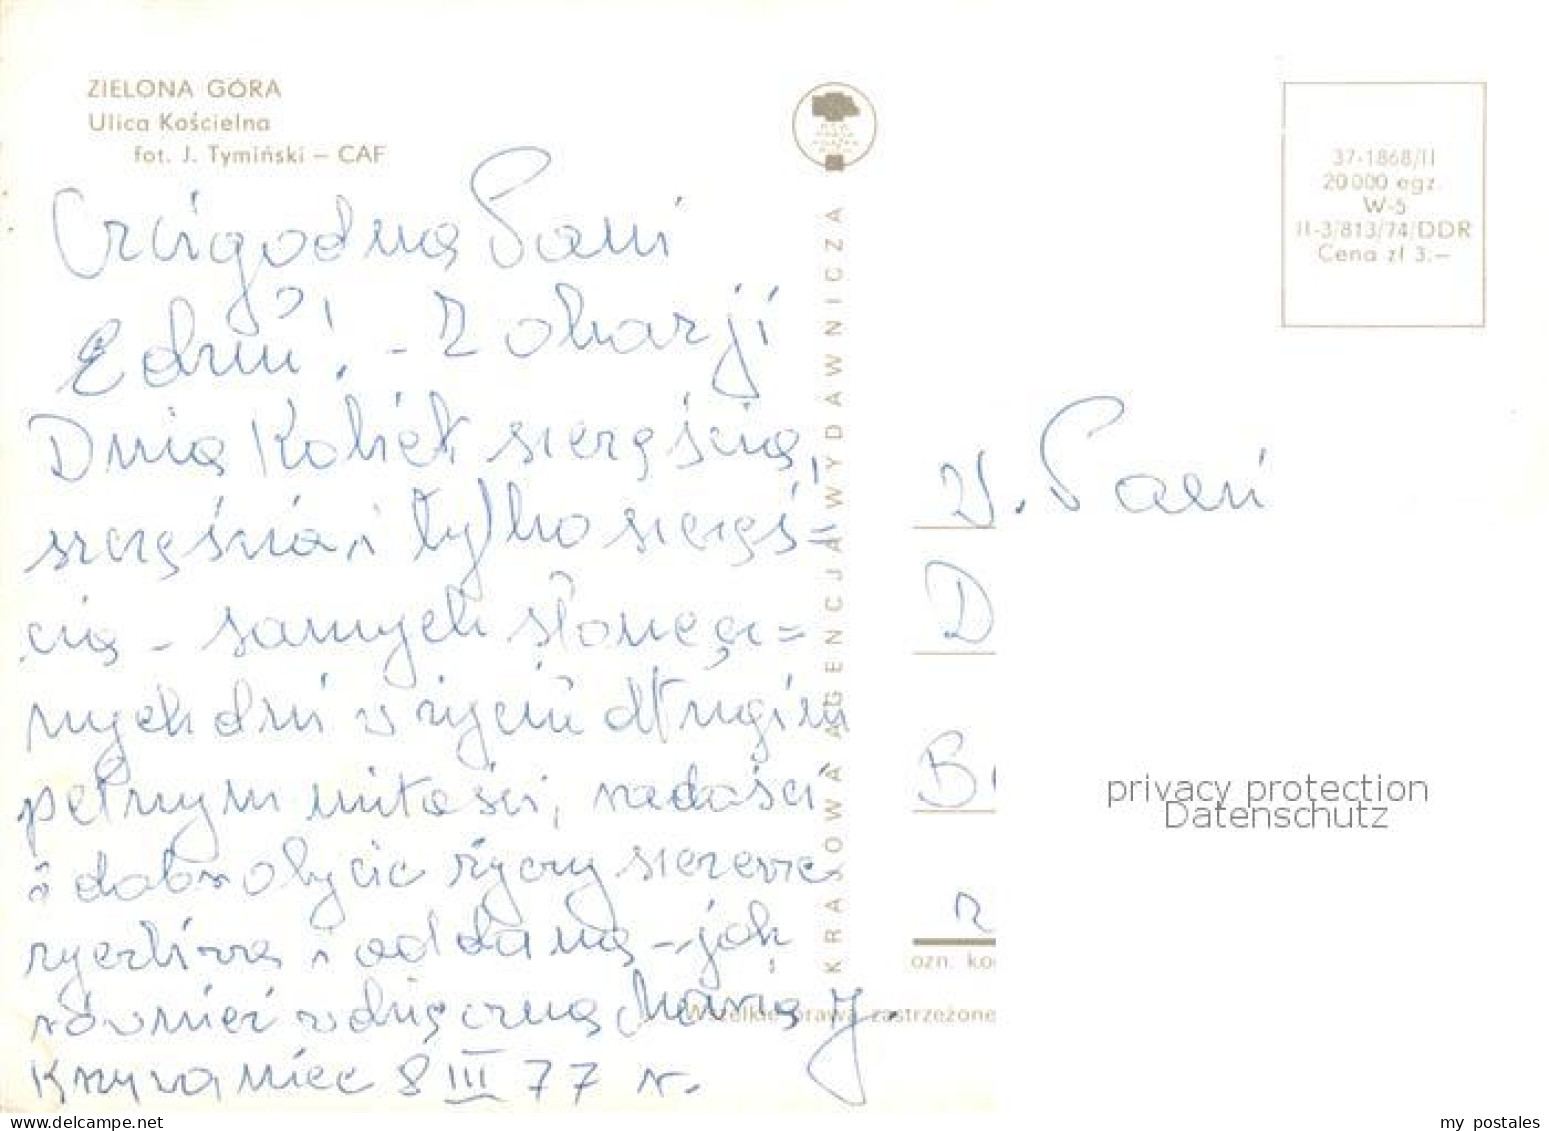 ZIELONA GÓRA
Ulica Kościelna
fot. J. Tymiński – CAF
Czcigodna Pani
Edziu! - Z okazji
Dnia Kobiet szczęścia,
szczęścia i tylko szczęś=
cia - samych słonecz=
nych dni w życiu długim
pełnym miłości, radości
i dobrobycie życzy szczerze
życzliwa i oddana - jak
również wdzięczna Maria J.
Krzywaniec 8 III 77 r.
KRAJOWA AGENCJA WYDAWNICZA
37-1868/II
20 000 egz.
W-5
II-3/813/74/DDR
Cena zł 3,–
W. Pani
D
B
ozn. ko
Wszelkie prawa zastrzeżone
privacy protection
Datenschutz
delcampe.net
my_postales